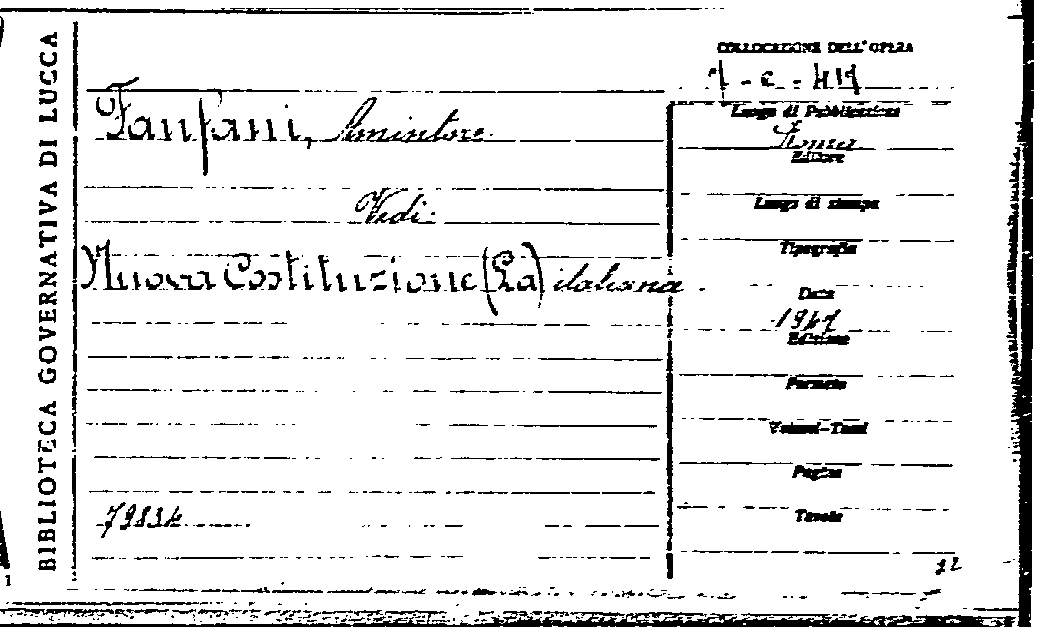 BIBLIOTECA GOVERNATIVA DI LUCCA
COLLOCAZIONE DELL'OPERA
Fanfani, Amintore
Vedi:
Nuova Costituzione (La) italiana.
Luogo di Pubblicazione
Roma
Editore
Luogo di stampa
Tipografia
Data
1947
Edizione
Formato
Volumi-Tomi
Pagine
Tavole
22
1